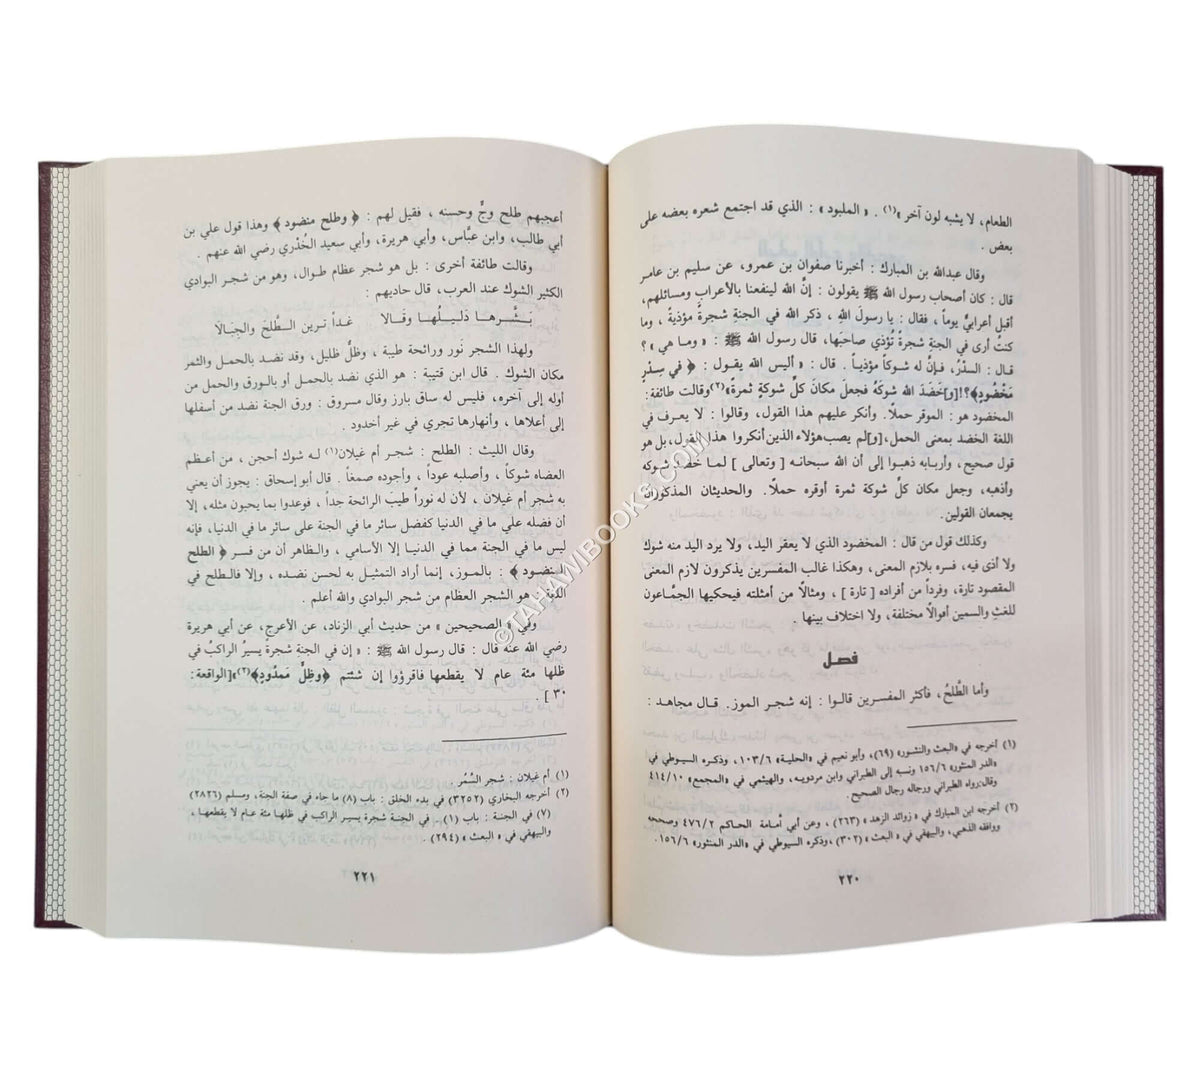 الطعام، لا يشبه لون آخر »(١) . « الملبود » : الذي قد اجتمع شعره بعضه على
بعض .
وقال عبدالله بن المبارك : أخبرنا صفوان بن عمرو، عن سليم بن عامر
قال : كان أصحاب رسول الله ﷺ يقولون : إنَّ الله لينفعنا بالأعراب ومسائلهم،
أقبل أعرابيٌّ يوماً ، فقال : يا رسول اللهِ ، ذكر الله في الجنةِ شجرةً مؤذيةً ، وما
كنتُ أرى في الجنةِ شجرةً تُؤذي صاحبَها، قال رسول الله ﷺ : « وما هي » ؟
قـال : السدْرُ، فـإنَّ له شـوكاً مؤذيـاً . قال : « أليس الله يقـول : ﴿ في سِـدْرٍ
مَخْضُودٍ﴾؟![و]خَضَدَ الله شوكَهُ فجعلَ مكانَ كلِّ شوكةٍ ثمرةً»(٢)وقالت طائفة:
المخضود هو : الموقر حملًا. وأنكر عليهم هذا القول، وقالوا : لا يعرف في
اللغة الخضد بمعنى الحمل،[و]لم يصب هؤلاء الذين أنكروا هذا القول، بل هو
قول صحيح، وأربابه ذهبـوا إلى أن الله سبحانـه [ وتعالى ] لمـا خضد شوكه
وأذهبه، وجعل مكان كلِّ شوكة ثمرة أوقره حملًا. والحديثان المذكوران
يجمعان القولين.
وكذلك قول من قال : المخضود الذي لا يعقر اليد، ولا يرد اليد منه شوك
ولا أذى فيه، فسره بلازم المعنى، وهكذا غالب المفسرين يذكرون لازم المعنى
المقصود تارة، وفرداً من أفراده [ تارة ] ، ومثالًا من أمثلته فيحكيها الجمَّاعون
للغثِ والسمين أقوالًا مختلفة، ولا اختلاف بينها .
فصل
وأما الطَّلحُ، فأكثر المفسرين قالـوا : إنه شجـر الموز. قـال مجاهـد :
(١) أخرجه في «البعث والنشور» (٦٩)، وأبو نعيم في «الحلية» ١٠٣/٦، وذكره السيوطي في
«الدر المنثور» ١٥٦/٦ ونسبه إلى الطبراني وابن مردويه، والهيثمي في «المجمع» ٤١٤/١٠
وقال:رواه الطبراني ورجاله رجال الصحيح.
(٢) أخرجه ابن المبارك في « زوائد الزهد » (٢٦٣) ، وعن أبي أمامة الحاكم ٤٧٦/٢ وصححه
ووافقه الذهبي، والبيهقي في « البعث » (٣٠٢) ، وذكره السيوطي في «الدر المنثور» ١٥٦/٦.
٢٢٠
أعجبهم طلح وجٍّ وحسنه ، فقيل لهم : ﴿ وطلح منضود ﴾ وهذا قول علي بن
أبي طالب، وابن عبَّاس، وأبي هريرة، وأبي سعيد الخُدْري رضي الله عنهم .
وقالت طائفة أخرى : بل هو شجر عظام طوال، وهو من شجر البوادي
الكثير الشوك عند العرب، قال حاديهم :
بَشَّـرهـا دَليـلُهـا وقَـالا غـداً تـرين الـطَّلْحَ والجِبَالا
ولهذا الشجر نَور ورائحة طيبة ، وظلٌّ ظليل، وقد نضد بالحمل والثمر
مكان الشوك . قال ابن قتيبة : هو الذي نضد بالحمل أو بالورق والحمل من
أوله إلى آخره، فليس له ساق بارز وقال مسروق : ورق الجنة نضد من أسفلها
إلى أعلاها ، وأنهارها تجري في غير أخدود .
وقال الليث : الطلح : شجر أم غيلان(١) لـه شوك أحجن ، من أعـظم
العضاه شوكاً ، وأصلبه عوداً ، وأجوده صمغاً. قال أبو إسحاق : يجوز أن يعني
به شجر أم غيلان ، لأن له نوراً طيبَ الرائحة جداً ، فوعدوا بما يحبون مثله، إلا
أن فضله علي ما في الدنيا كفضل سائر ما في الجنة على سائر ما في الدنيا، فإنه
ليس ما في الجنة مما في الدنيـا إلا الأسامي ، والـظاهر أن من فسـر ﴿ الطلح
المنضـود ﴾ : بالمـوز، إنما أراد التمثيـل به لحسن نضـده ، وإلا فالـطلح في
اللغة هو الشجر العظام من شجر البوادي والله أعلم .
وفي « الصحيحين » من حديث أبي الزناد، عن الأعرج، عن أبي هريرة
رضي الله عنه قال : قال رسول الله ﷺ : « إن في الجنةِ شجرةً يسيرُ الراكبُ في
ظلها مئة عام لا يقطعها فاقرؤوا إن شئتم ﴿وظِلٍّ مَمدُودٍ﴾(٢)»[الواقعة:
٣٠ ] .
(١) أم غيلان : شجر السَّمُر .
(٢) أخرجه البخاري (٣٢٥٢) في بدء الخلق : باب (٨) ما جاء في صفة الجنة، ومسلم (٢٨٢٦)
(٧) في الجنـة : باب (١) .. في الجنـة شجرة يسـير الراكب في ظلهـا مئة عـام لا يقطعهـا ،
والبيهقي في « البعث » (٢٩٤) .
٢٢١
©TAHAWIBOOKS.COM